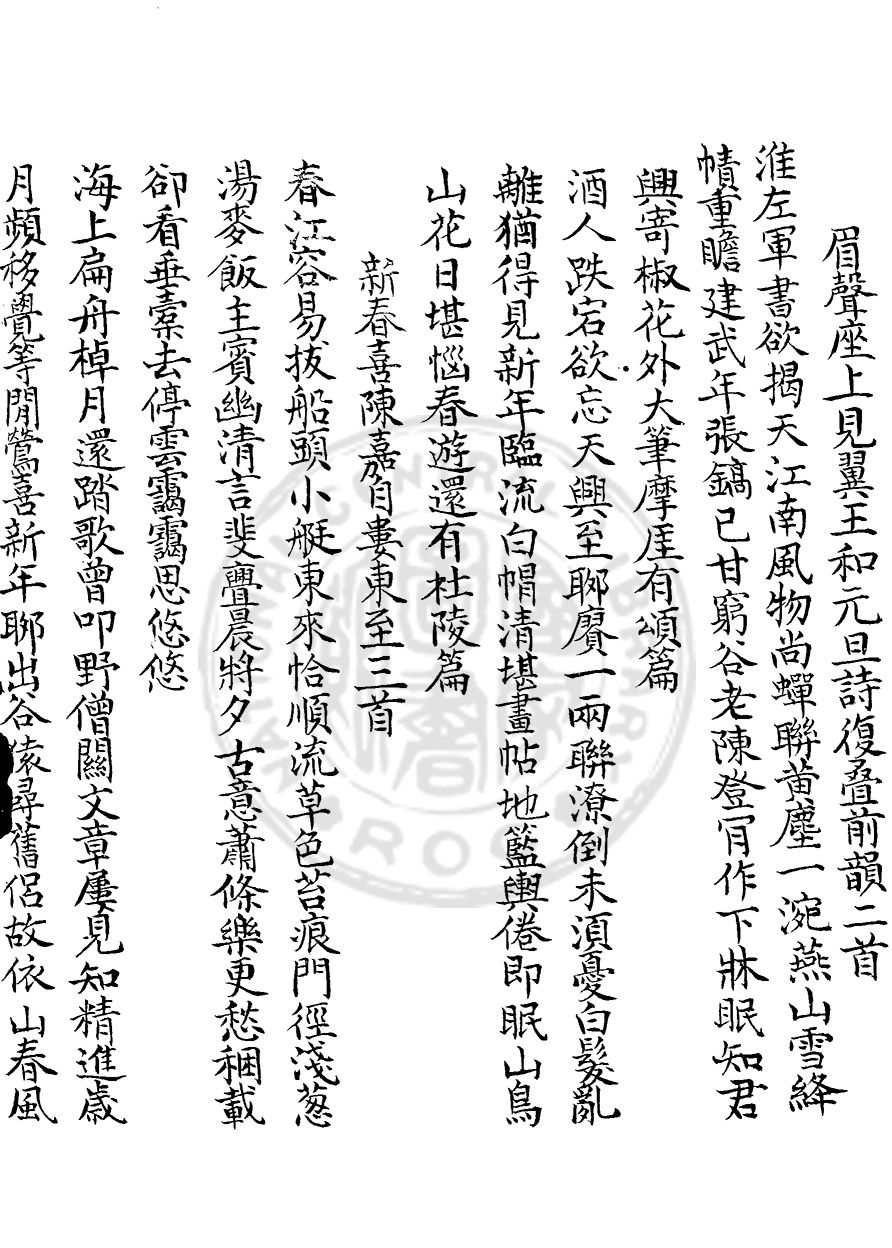 眉聲座上見翼王和元旦詩復叠前韻二首
淮左軍書欲揭天江南風物尚蟬聯黄塵一涴燕山雪絳
幘重瞻建武年張鎬已甘窮谷老陳登肯作下牀眠知君
興寄椒花外大筆摩厓有頌篇
酒人跌宕欲忘天興至聊賡一兩聯潦倒未須憂白髮亂
離猶得見新年臨流白帽清堪畫帖地籃輿倦即眠山鳥
山花日堪惱春遊還有杜陵篇
新春喜陳嘉自婁東至三首
春江容易拔船頭小艇東來恰順流草色苔痕門徑淺葱
湯麥飯主賓幽清言斐亹晨將夕古意蕭條樂更愁稛載
卻看垂橐去停雲靄靄思悠悠
海上扁舟棹月還踏歌曾叩野僧關文章屢見知精進歲
月頻移覺等閒鶯喜新年聊出谷猿尋舊侣故依山春風